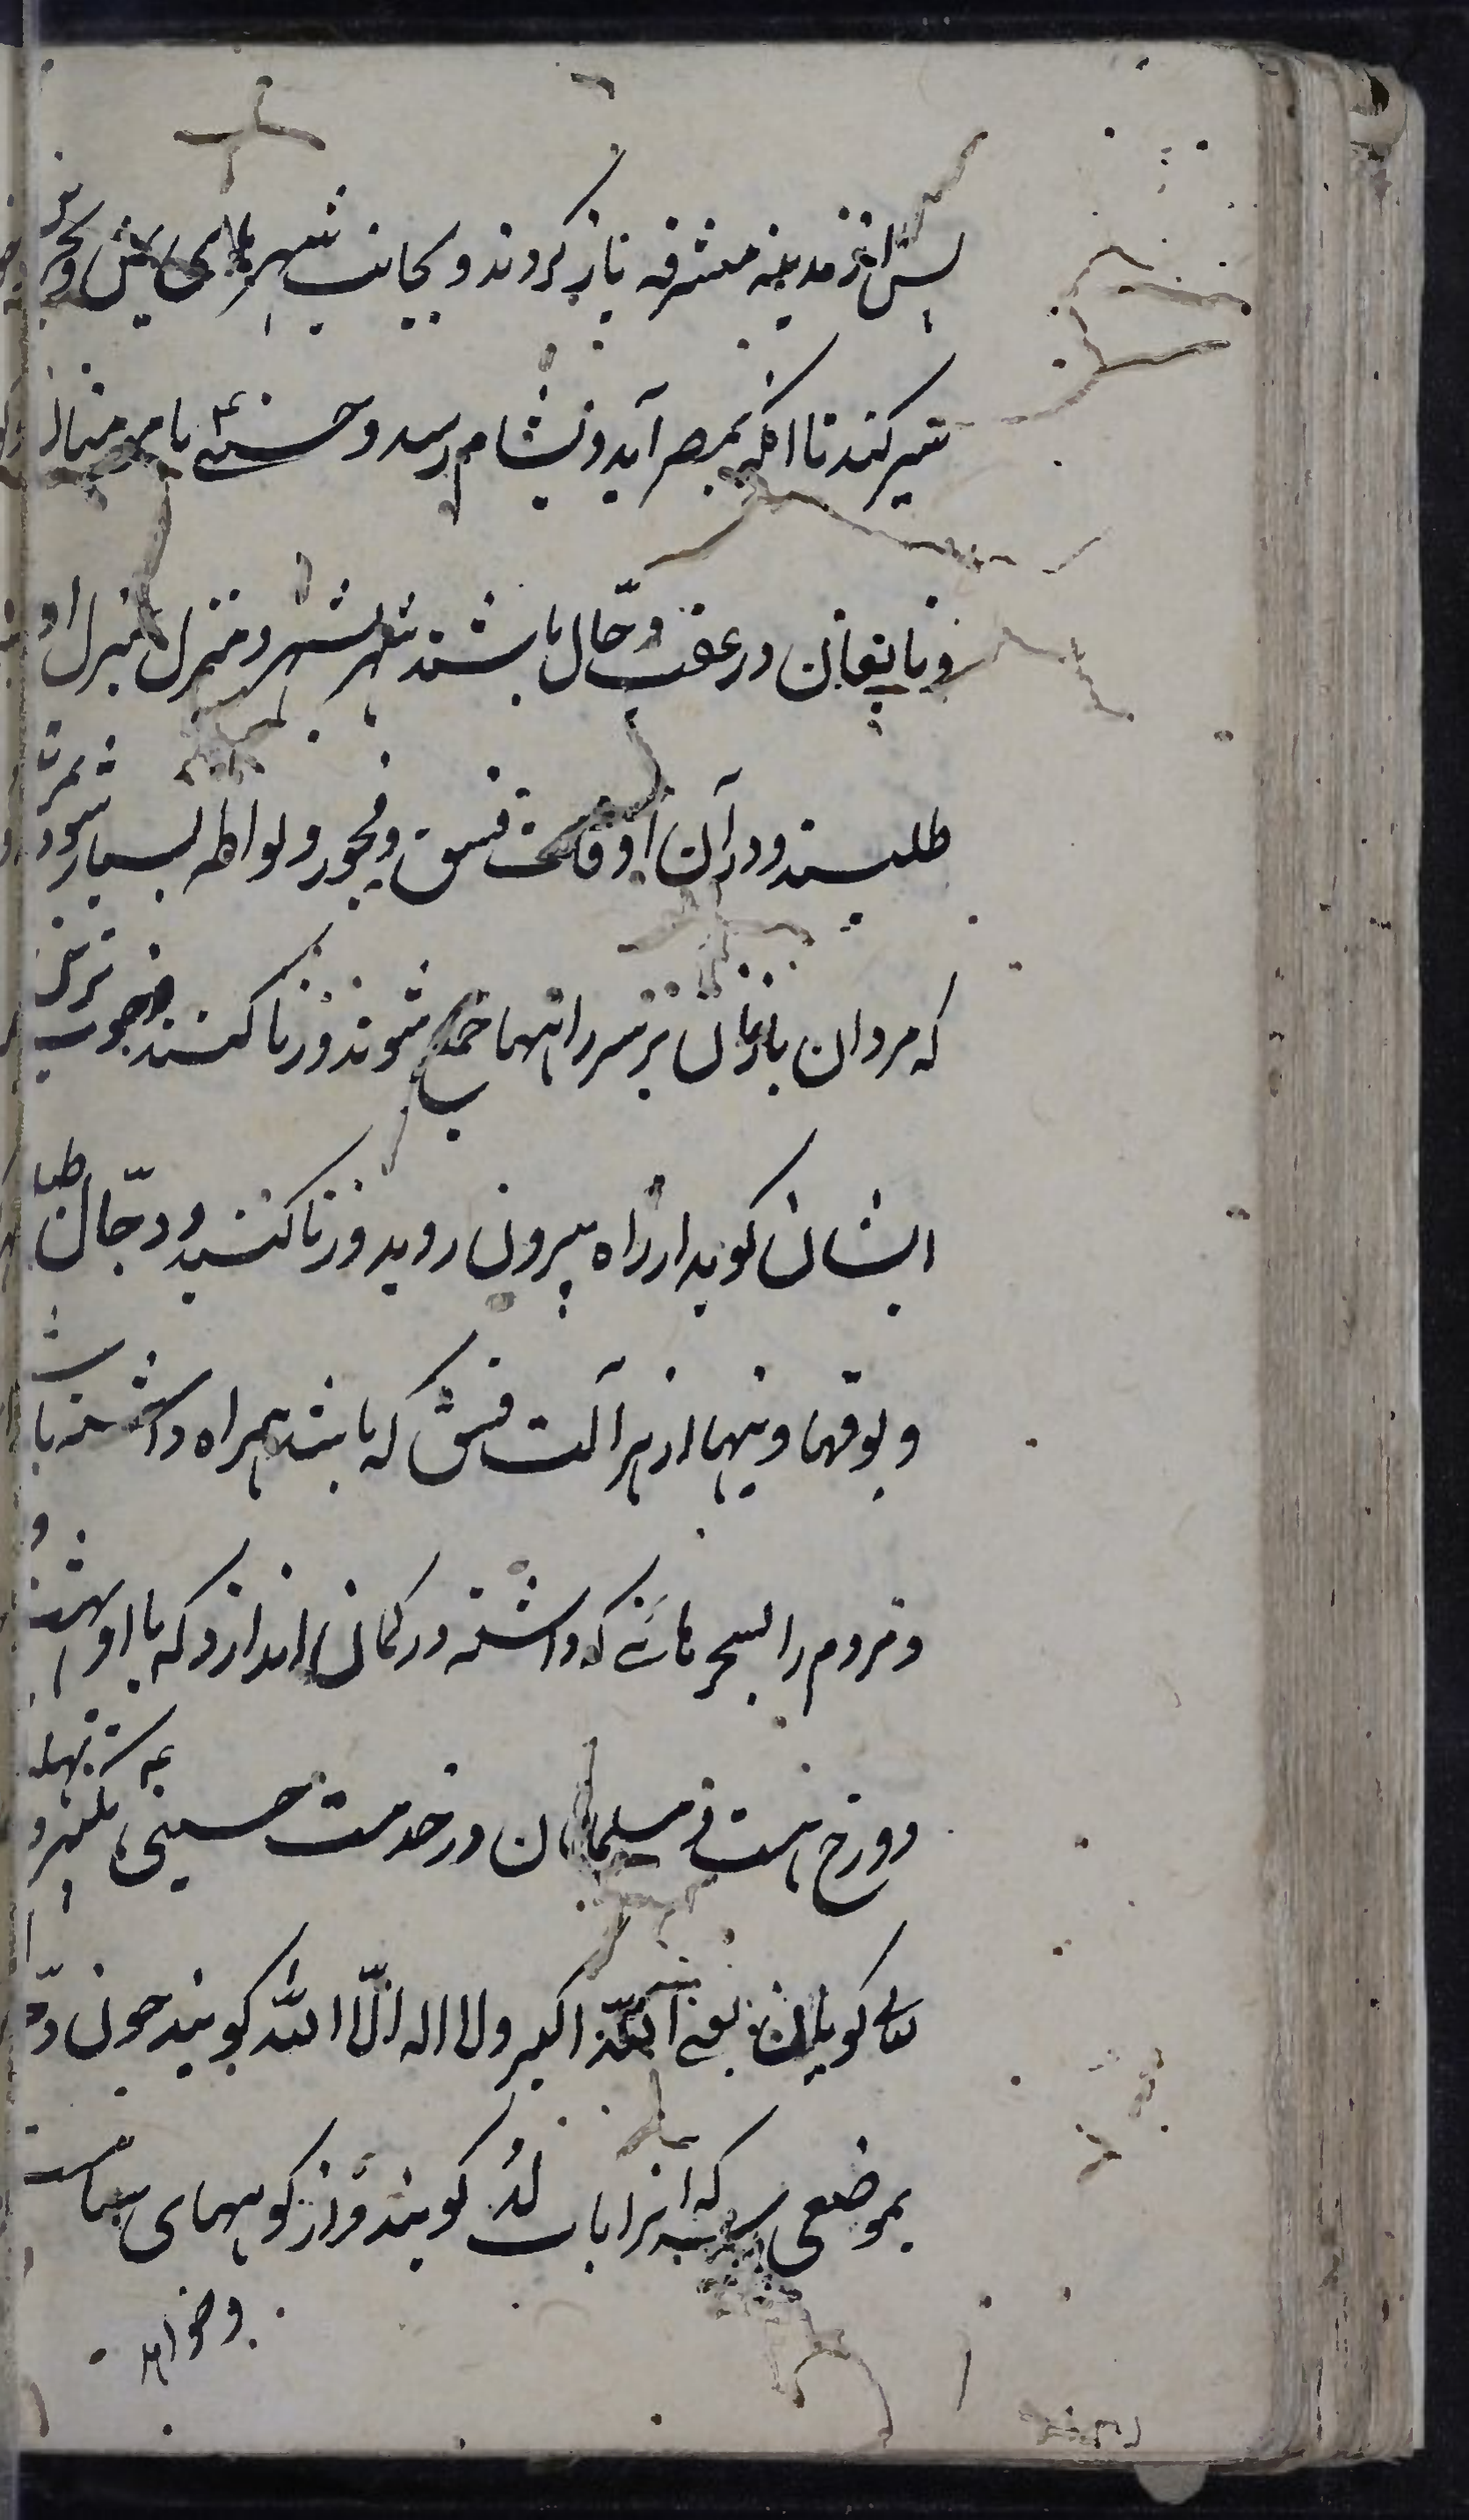 پس از مدینه مشرفه باز کردند و بجانب شهرهای
سیر کند تا انکه بمصر آید و بشام رسد و حسنی با مومنان
و تابعان در عقب دجال باشند شهر بشهر و منزل بمنزل او
طلبند و در آن اوقات فسق و فجور و لواطه بسیار شود بمرتبه
که مردان با زنان بر سر راهها جمع شوند و زنا کنند خوب ترین
ایشان کوید از راه بیرون روید و زنا کنید و دجال طبلها
و بوقها و نیها از هر آلت فسق که باشد همراه داشته باشد
و مردم را بسحرهائی که داشته در کمان اندازد که با او بهشت و
دوزخ هست و مسلمانان در خدمت حسینی بتکبیر و تهلیل
کویان یعنی الله اکبر ولا اله الّا الله کویند چون
بموضعی رسد که انرا باب لُد کویند و از کوههای
و خواهد